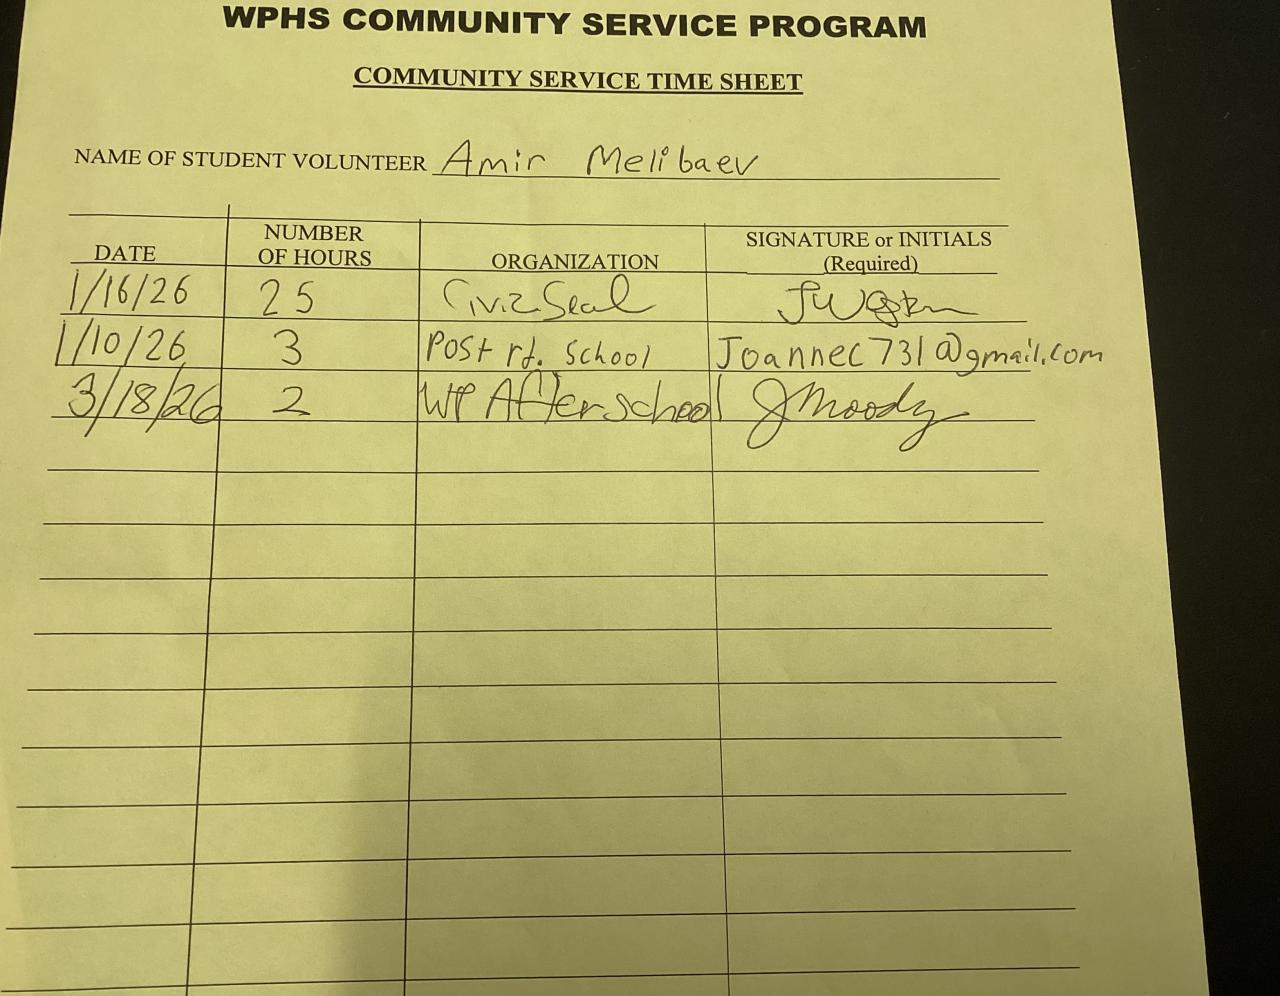 WPHS COMMUNITY SERVICE PROGRAM
COMMUNITY SERVICE TIME SHEET
NAME OF STUDENT VOLUNTEER Amir Melibaev
DATE NUMBER OF HOURS ORGANIZATION SIGNATURE or INITIALS (Required)
1/16/26 25 Civic Seal
1/10/26 3 Post rd. School Joannec731@gmail.com
3/18/26 2 WP Afterschool JMoody